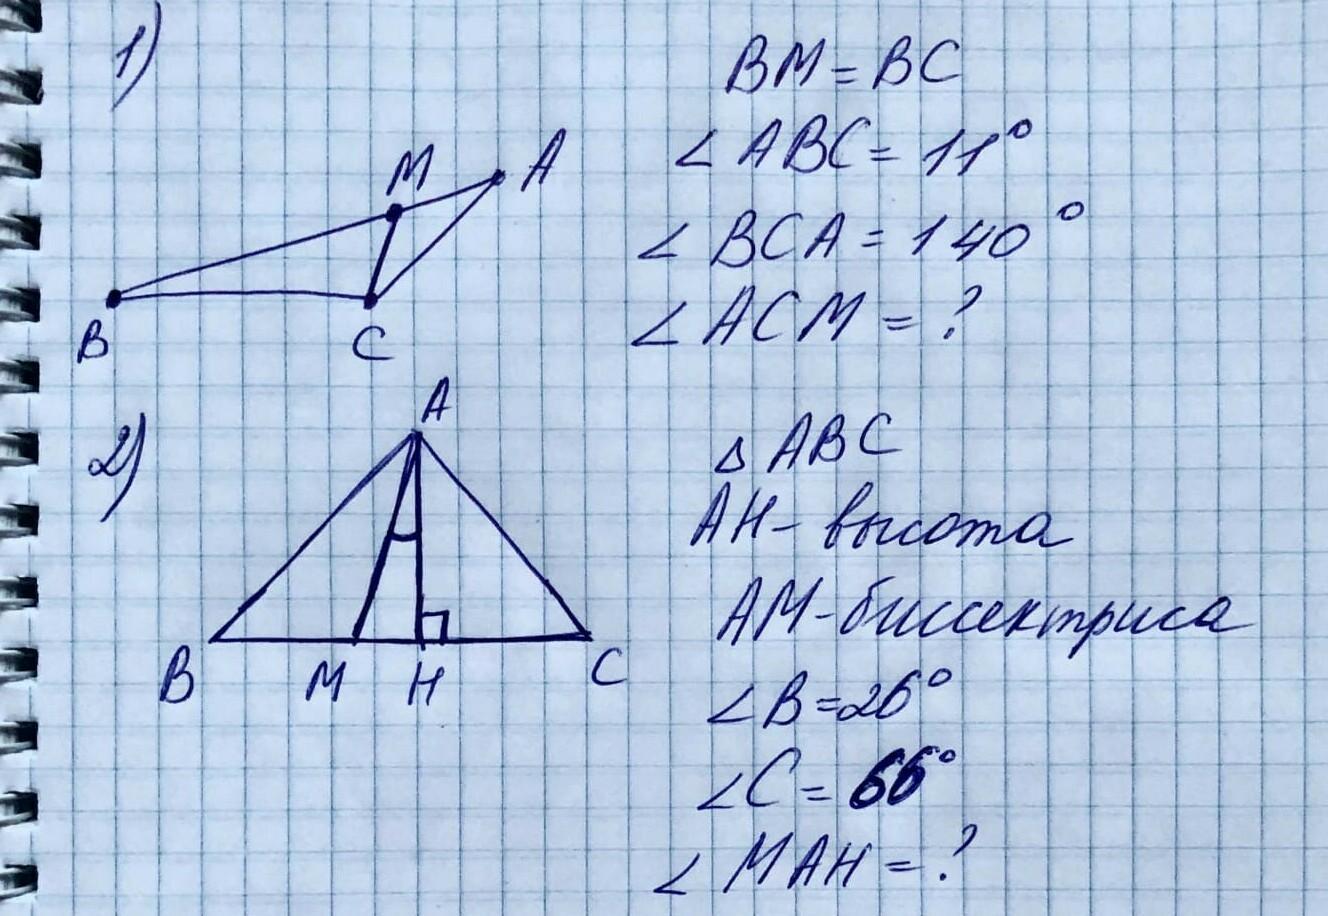 1)
BM = BC
∠ ABC = 11°
∠ BCA = 140°
∠ ACM = ?
M
A
B
C
2)
A
B
M
H
C
△ ABC
AH - высота
AM - биссектриса
∠ B = 26°
∠ C = 66°
∠ MAH = ?